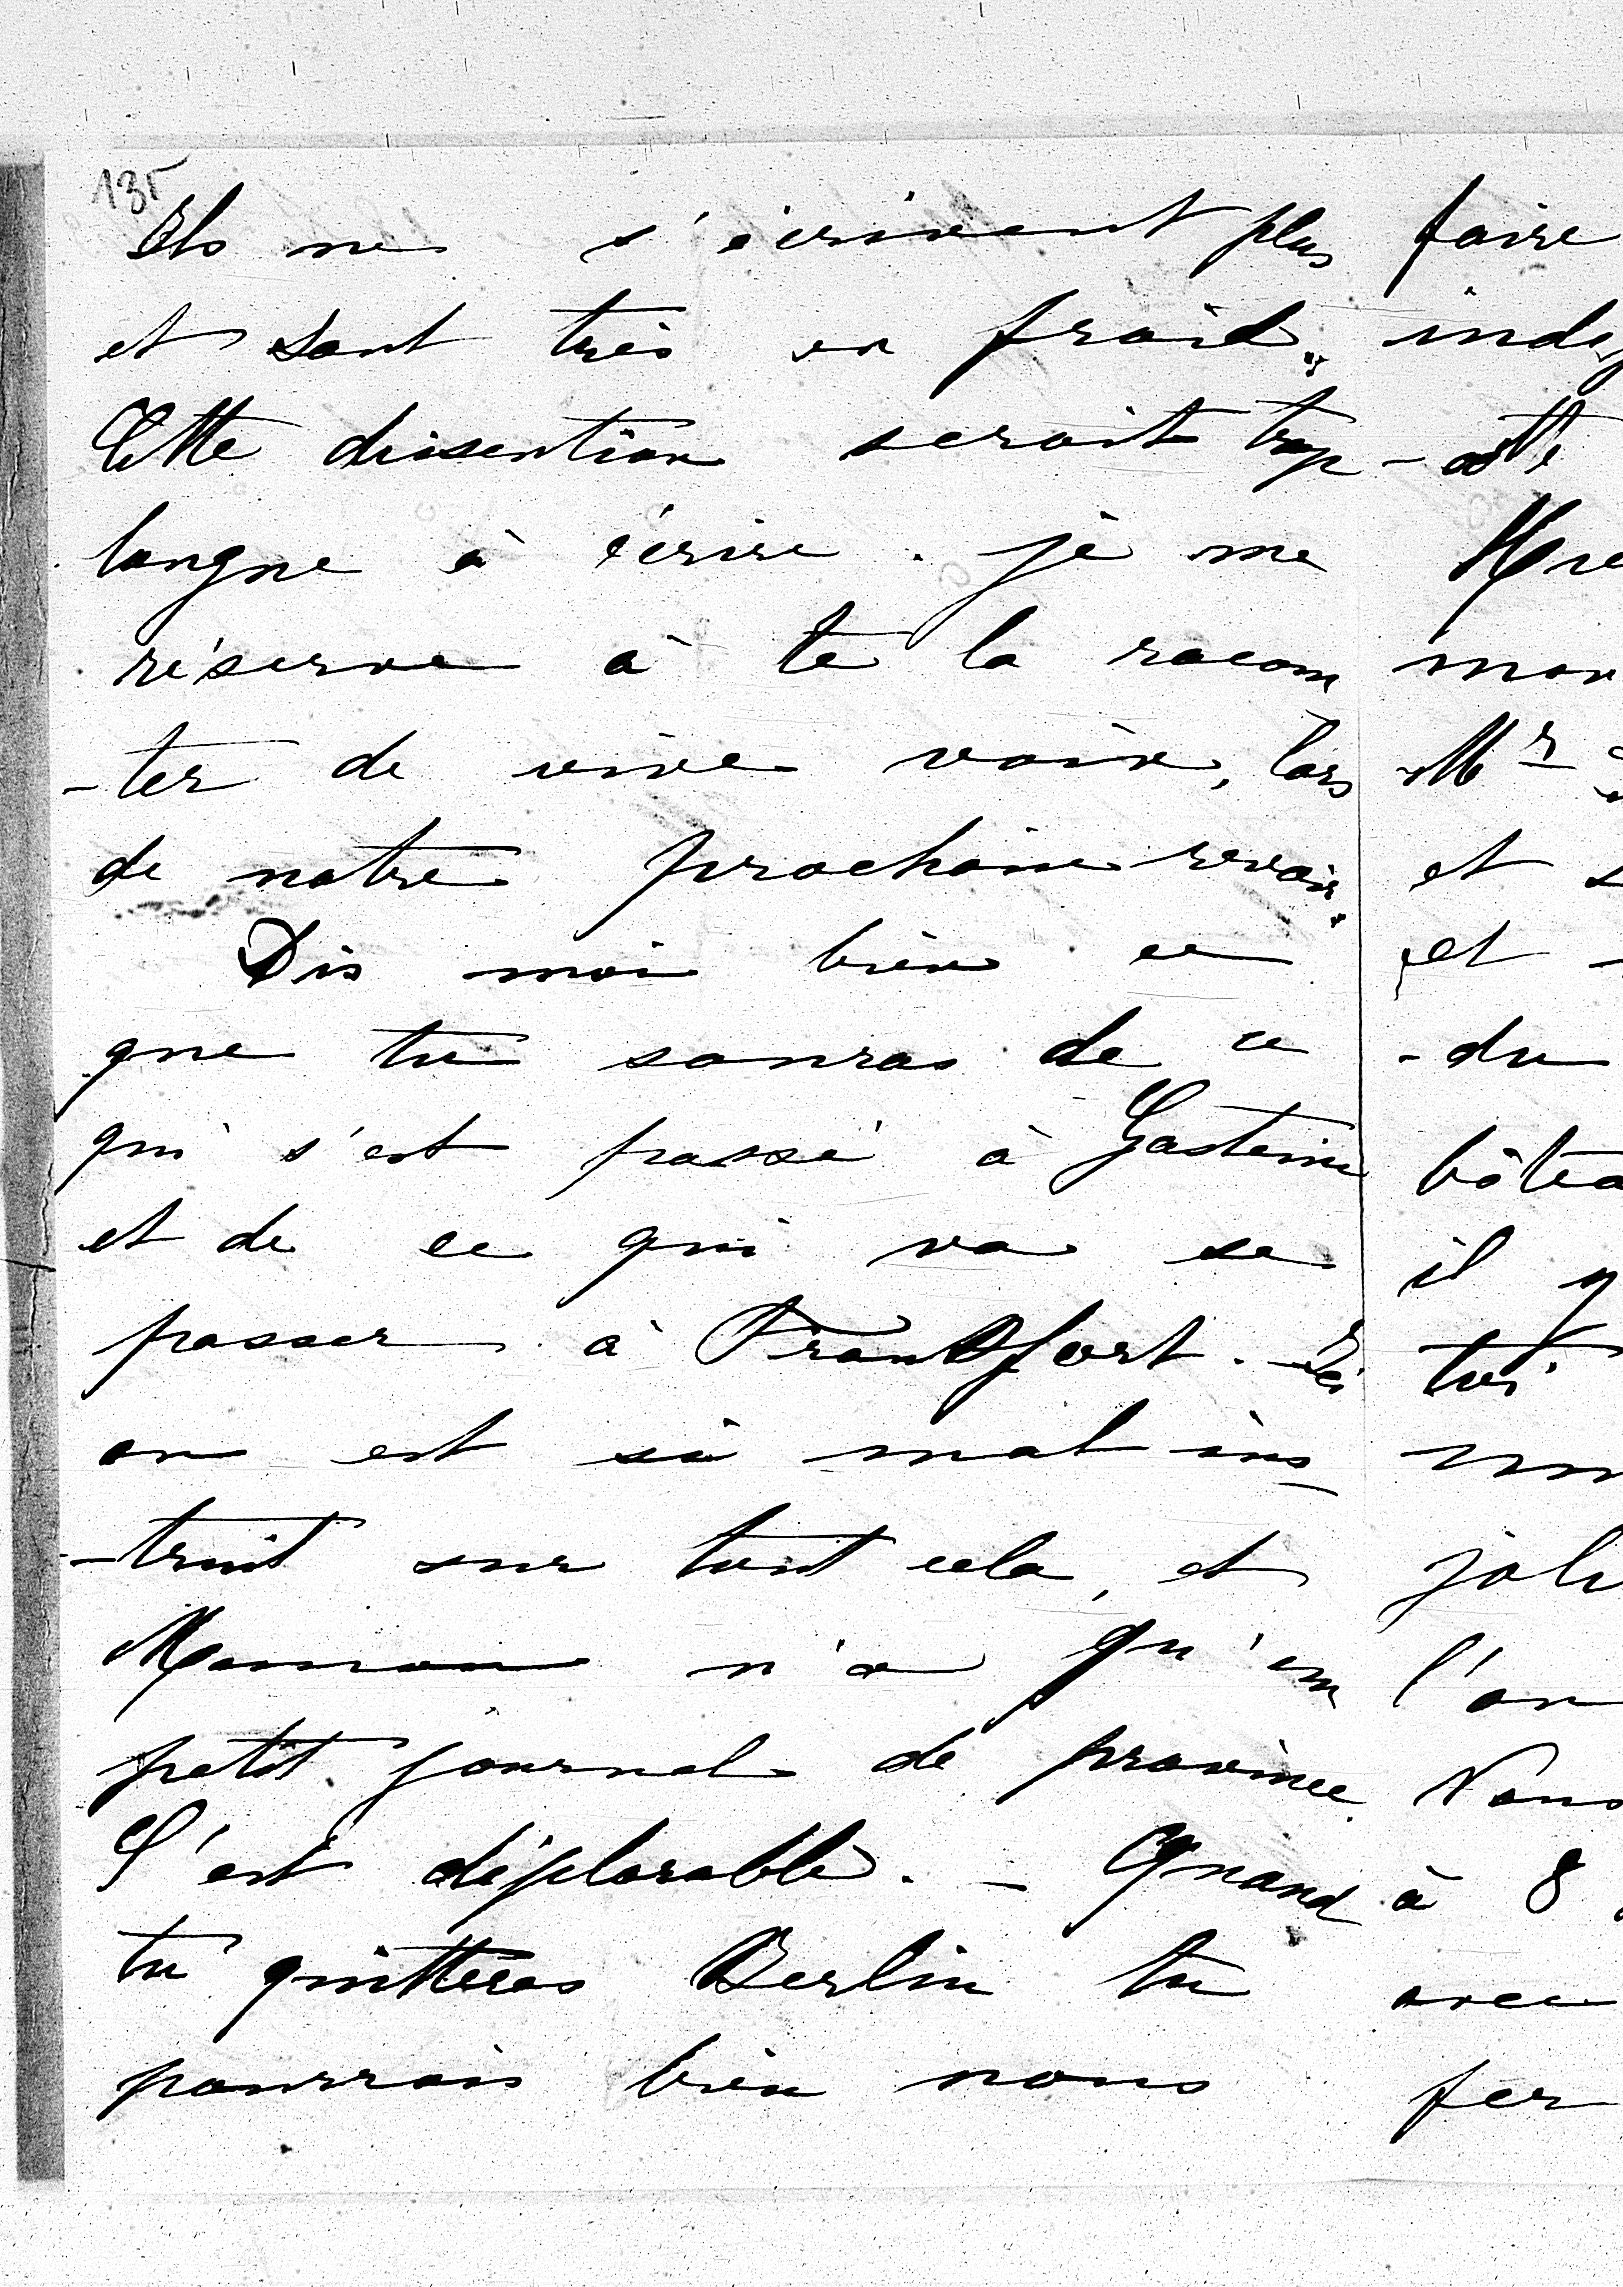 135
Ils ne s'écrivent plus
et sont très en froid.
Cette disention serait trop
longue à écrire. je me
réserve à te la racon
-ter de vive voix, lors
de notre prochain revoir.
Dis moi bien ce
que tu sauras de ce
qui s'est passé à Gastein
et de ce qui va se
passer à Francfort. Ici
on est si mal ins
-truit sur tout cela, et
Maman n'a qu'un
petit journal de province.
C'est déplorable. – Quand
tu quitteras Berlin tu
pourrais bien nous
faire
Mr
et
et
-du
il y
toi
l'on
à 8
avec
fer